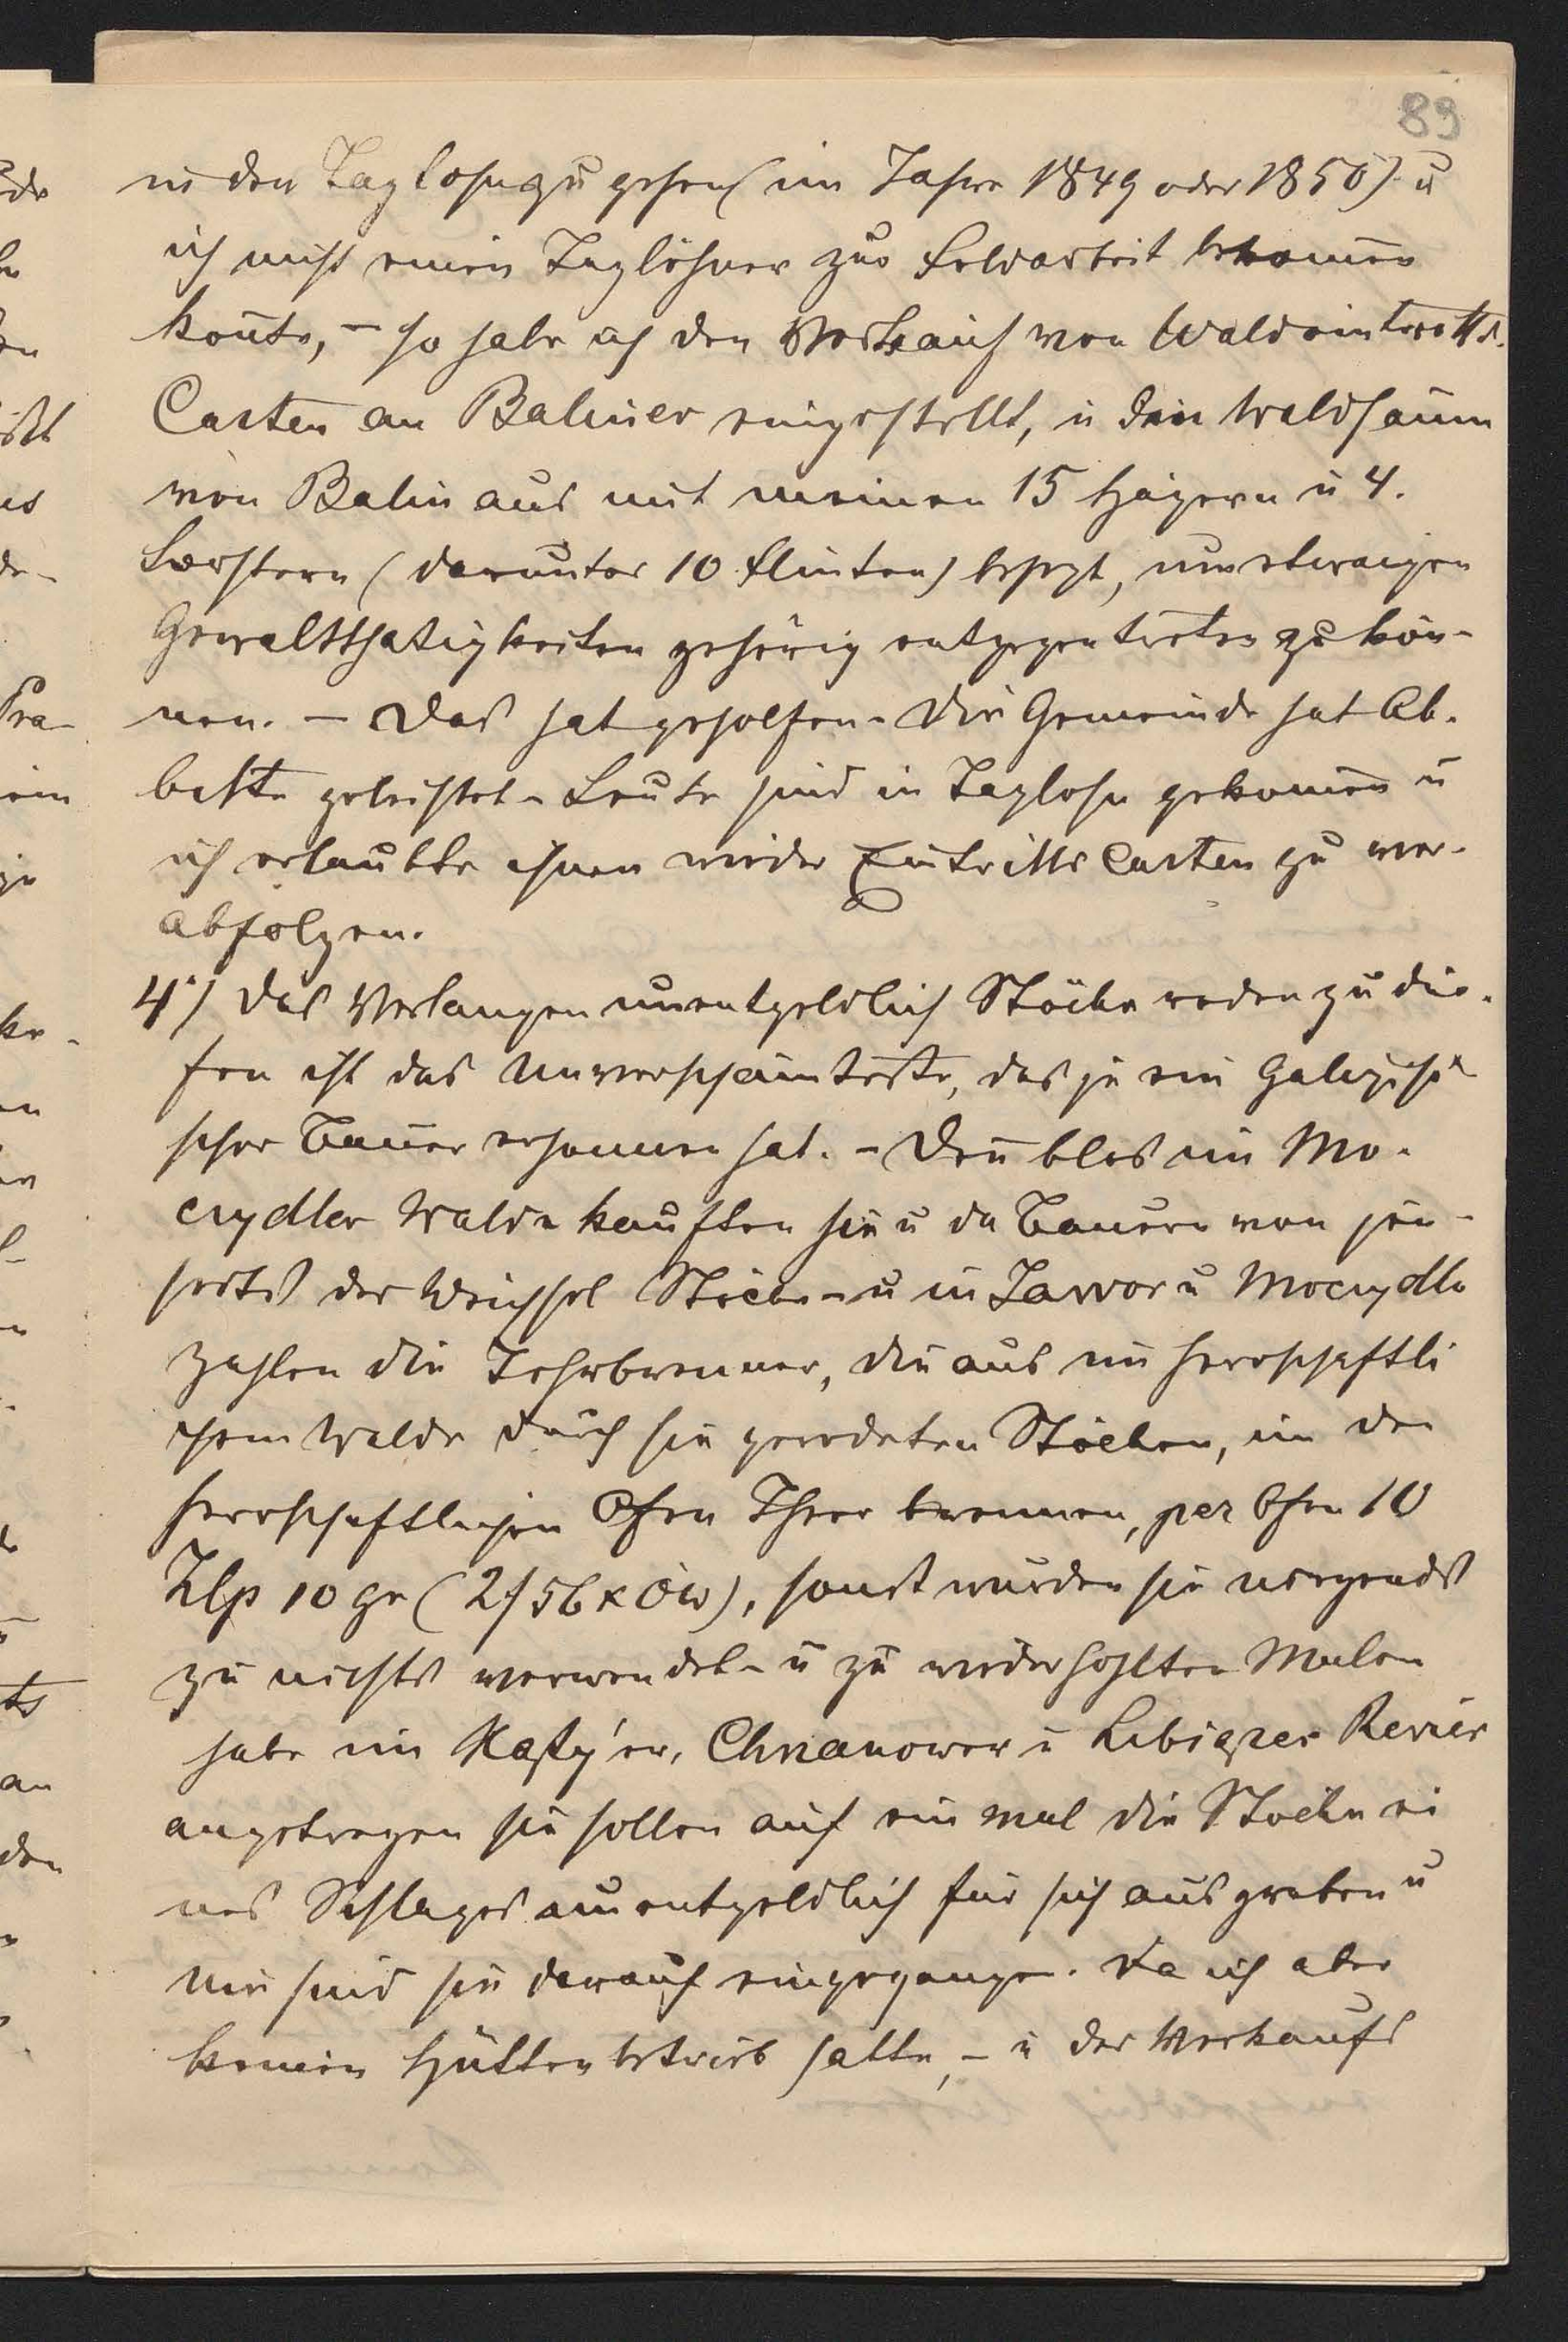 89
in den Taglohn zu gehen (im Jahre 1849 oder 1850) u
ich nicht einen Taglöhner zur Feldarbeit bekomen
konte, – so habe ich den Verkauf von Waldeintritts-
Carten an Baliner eingestellt, u den Waldsaum
von Balin aus mit meinen 15 Hägern u 4.
Förstern (darunter 10 Flinten) besezt, um etwaigen
Gewaltthätigkeiten gehörig entgegentreten zu kön-
nen. – Das hat geholfen – Die Gemeinde hat Ab-
bitte geleistet – Leute sind in Taglohn gekomen u
ich erlaubte ihnen wieder Eintritts Carten zu ver-
abfolgen.
4.) Das Verlangen unentgeldlich Stöcke roden zu dür-
fen ist das Unverschämteste, das je ein Galizi
scher Bauer ersonnen hat. – Den blos im Mo-
czydler Walde kauften sie u die Bauern von jen-
seits der Weichsel Stöcke – u in Jawor u Moczydlo
zahlen die Teerbrenner, die aus im herrschaftli
chem Walde durch sie gerodeten Stöcken, in den
herrschaftlichen Öfen Theer brennen, per Ofen 10
Zlp 10 gr (2 f 56 x ÖW), sonst wurden sie nirgends
zu nichts verwendet – u zu wiederhohlten Malen
habe im Chrzanower u Libiązer Revier
angetragen sie sollen auf ein mal die Stöcke ei
nes Schlages unentgeldlich für sich ausgraben u
nie sind sie darauf eingegangen. Da ich aber
keinen Hüttenbetrieb hatte, – u der Verkaufs